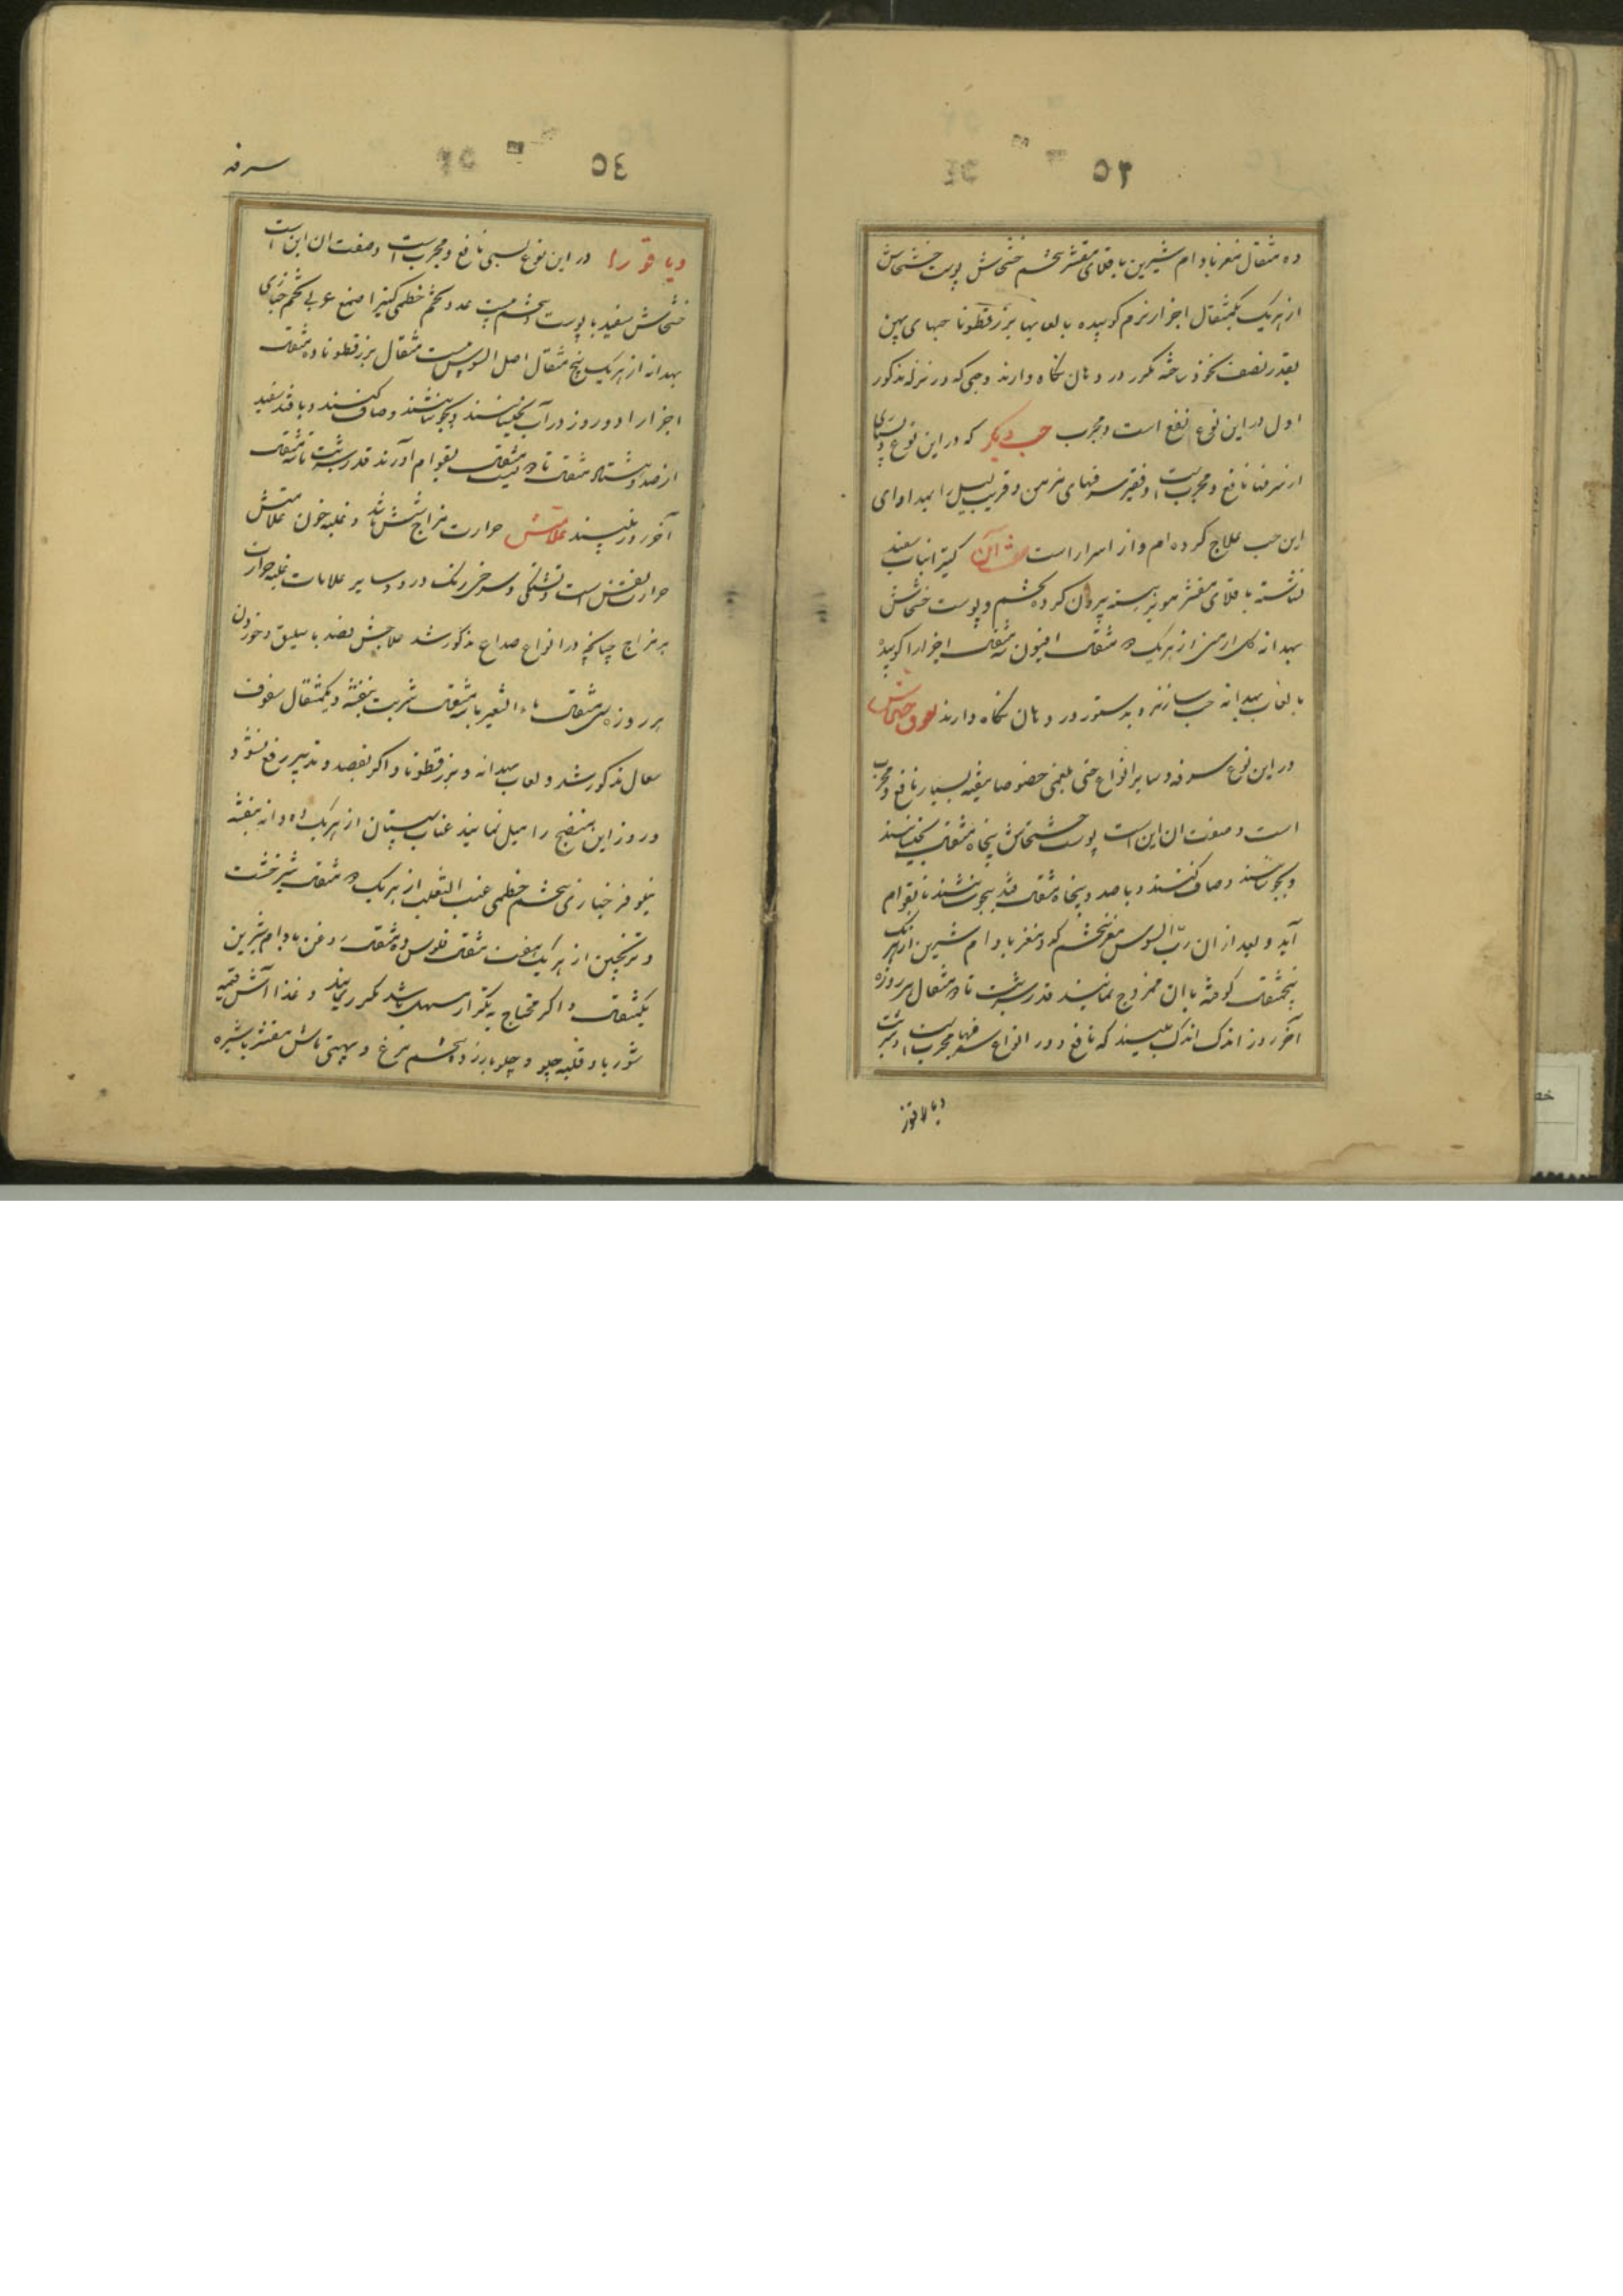 ده مثقال مغز بادام شیرین باقلای مقشر تخم خشخاش پوست خشخاش
از هریک یکمثقال اجزا را نرم کوبیده با لعابها بزرقطونا حبهای پهن
بقدر نصف نخود ساخته مکرر در دهان نگاه دارند و حبی که در نزله مذکور
اول در این نوع انفع است و مجرب حب دیگر که در این نوع و بسیاری
از سرفها نافع و مجربست و فقیر سرفهای مزمن و قریب بسل را بمداوای
این حب علاج کرده‌ام و از اسرار است صفت آن کتیرا نبات سفید
نشاسته باقلای مقشر مویز هسته بیرون کرده تخم و پوست خشخاش
بهدانه گل ارمنی از هریک ده مثقال افیون سه مثقال اجزا را کوبیده
با لعاب بهدانه حب سازند و بدستور در دهان نگاه دارند لعوق خشخاش
در این نوع سرفه و سایر انواع حتی بلغمی خصوصا بیقیه بسیار نافع و مجرب
است و صفت ان این است پوست خشخاش پنجاه مثقال بخیسانند
و بجوشانند و صاف کنند و با صد و پنجاه مثقال قند بجوشانند تا بقوام
آید و بعد از ان رب السوس مغز تخم کدو مغز بادام شیرین از هریک
پنجمثقال کوفته با ان ممزوج نمایند قدر شربت تا ده مثقال هر روزه
آخر روز اندک اندک بلیسند که نافع و در انواع سرفها مجربست و شربت
دیاقوزا
٥٢
سرفه
٥٤
٥٣
دیاقوزا در این نوع بسی نافع و مجربست و صفت ان این است
خشخاش سفید با پوست بیست عدد تخم خطمی کتیرا صمغ عربی تخم خبازی
بهدانه از هریک پنج مثقال اصل السوس بیست مثقال بزرقطونا ده مثقال
اجزا را دو روز در آب بخیسانند و بجوشانند و صاف کنند و با قند سفید
از صد و هشتاد مثقال تا دویست مثقال بقوام آورند قدر شربت تا سه مثقال
آخر روز بلیسند علامتش حرارت مزاج شش باشد و غلبه خون علامتش
حرارت نفس است و تشنگی و سرخی رنگ در رو و سایر علامات غلبه حرارت
بر مزاج چنانچه در انواع صداع مذکور شد علاجش فصد باسلیق و خوردن
هر روزه سی مثقال ماء الشعیر با سه مثقال شربت بنفشه و یکمثقال سفوف
سعال مذکور شد و لعاب بهدانه و بزرقطونا و اگر بفصد و تدبیر رفع نشود
در روز این منضج را میل نمایند عناب سپستان از هریک ده دانه بنفشه
نیلوفر خبازی تخم خطمی عنب الثعلب از هریک ده مثقال شیرخشت
و ترنجبین از هریک هفت مثقال فلوس ده مثقال روغن بادام شیرین
یکمثقال و اگر محتاج بتکرار مسهل باشد مکرر نمایند و غذا آش قیمه
شوربا و قلیه چلو و چلو با زرده تخم مرغ و بهیتی ماش مقشر با شیره